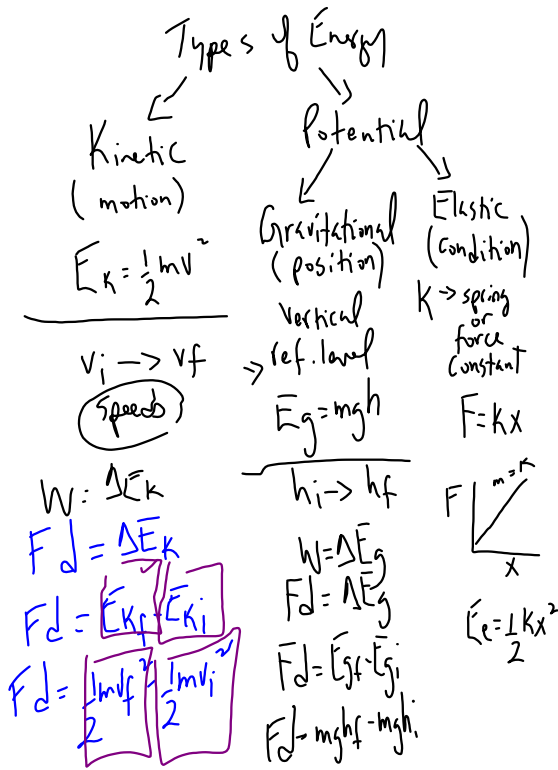 Types of Energy
Kinetic
(motion)
E_K = ½mv²
v_i → v_f
speeds
W = ΔE_K
Fd = ΔE_K
Fd = E_Kf - E_Ki
Fd = ½mv_f² - ½mv_i²
Potential
Gravitational
(position)
vertical
→ ref. level
E_g = mgh
h_i → h_f
W = ΔE_g
Fd = ΔE_g
Fd = E_gf - E_gi
Fd = mgh_f - mgh_i
Elastic
(condition)
K → spring
or
force
constant
F = Kx
F
m = K
x
E_e = ½Kx²